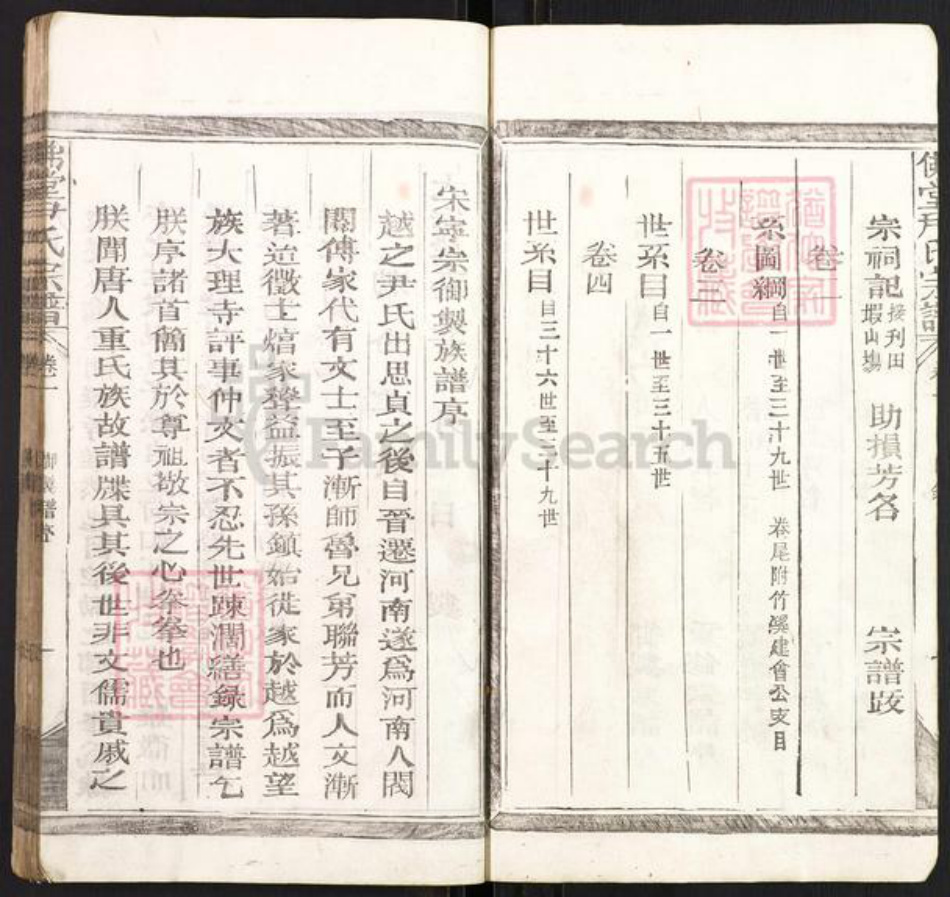 宗祠記 接利田 蝦山塲 助損芳名 宗譜跋
卷二
系圖綱 自一世至三十九世 卷尾附竹溪建會公支目
卷三
世系目 自一世至三十五世
卷四
世系目 自三十六世至三十九世
宋寧宗御製族譜序
越之尹氏出思貞之後自晉遷河南遂爲河南人閥
閱傳家代有文士至子漸師魯兄弟聯芳而人文漸
著迨徵士焞家聲益振其孫鎮始徙家於越爲越望
族大理寺評事仲文者不忍先世踈濶繕録宗譜乞
朕序諸首簡其於尊祖敬宗之心拳拳也
朕聞唐人重氏族故譜牒具其後世非文儒貴戚之
氏宗譜
卷一
御製譜序
FamilySearch